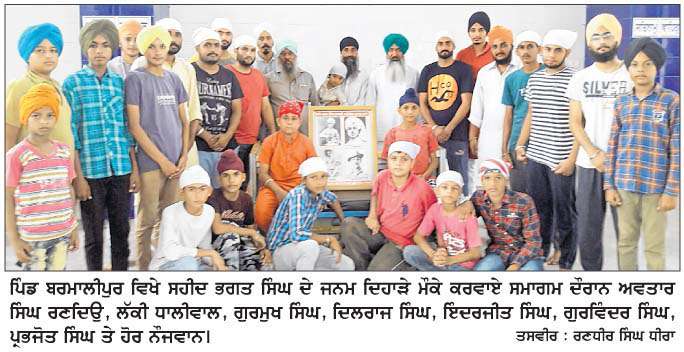 ਪਿੰਡ ਬਰਮਾਲੀਪੁਰ ਵਿਖੇ ਸਹੀਦ ਭਗਤ ਸਿੰਘ ਦੇ ਜਨਮ ਦਿਹਾੜੇ ਮੌਕੇ ਕਰਵਾਏ ਸਮਾਗਮ ਦੌਰਾਨ ਅਵਤਾਰ
ਸਿੰਘ ਰਣਦਿਉ, ਲੱਕੀ ਧਾਲੀਵਾਲ, ਗੁਰਮੁਖ ਸਿੰਘ, ਦਿਲਰਾਜ ਸਿੰਘ, ਇੰਦਰਜੀਤ ਸਿੰਘ, ਗੁਰਵਿੰਦਰ ਸਿੰਘ,
ਪ੍ਰਭਜੋਤ ਸਿੰਘ ਤੇ ਹੋਰ ਨੌਜਵਾਨ।
ਤਸਵੀਰ : ਰਣਧੀਰ ਸਿੰਘ ਧੀਰਾ